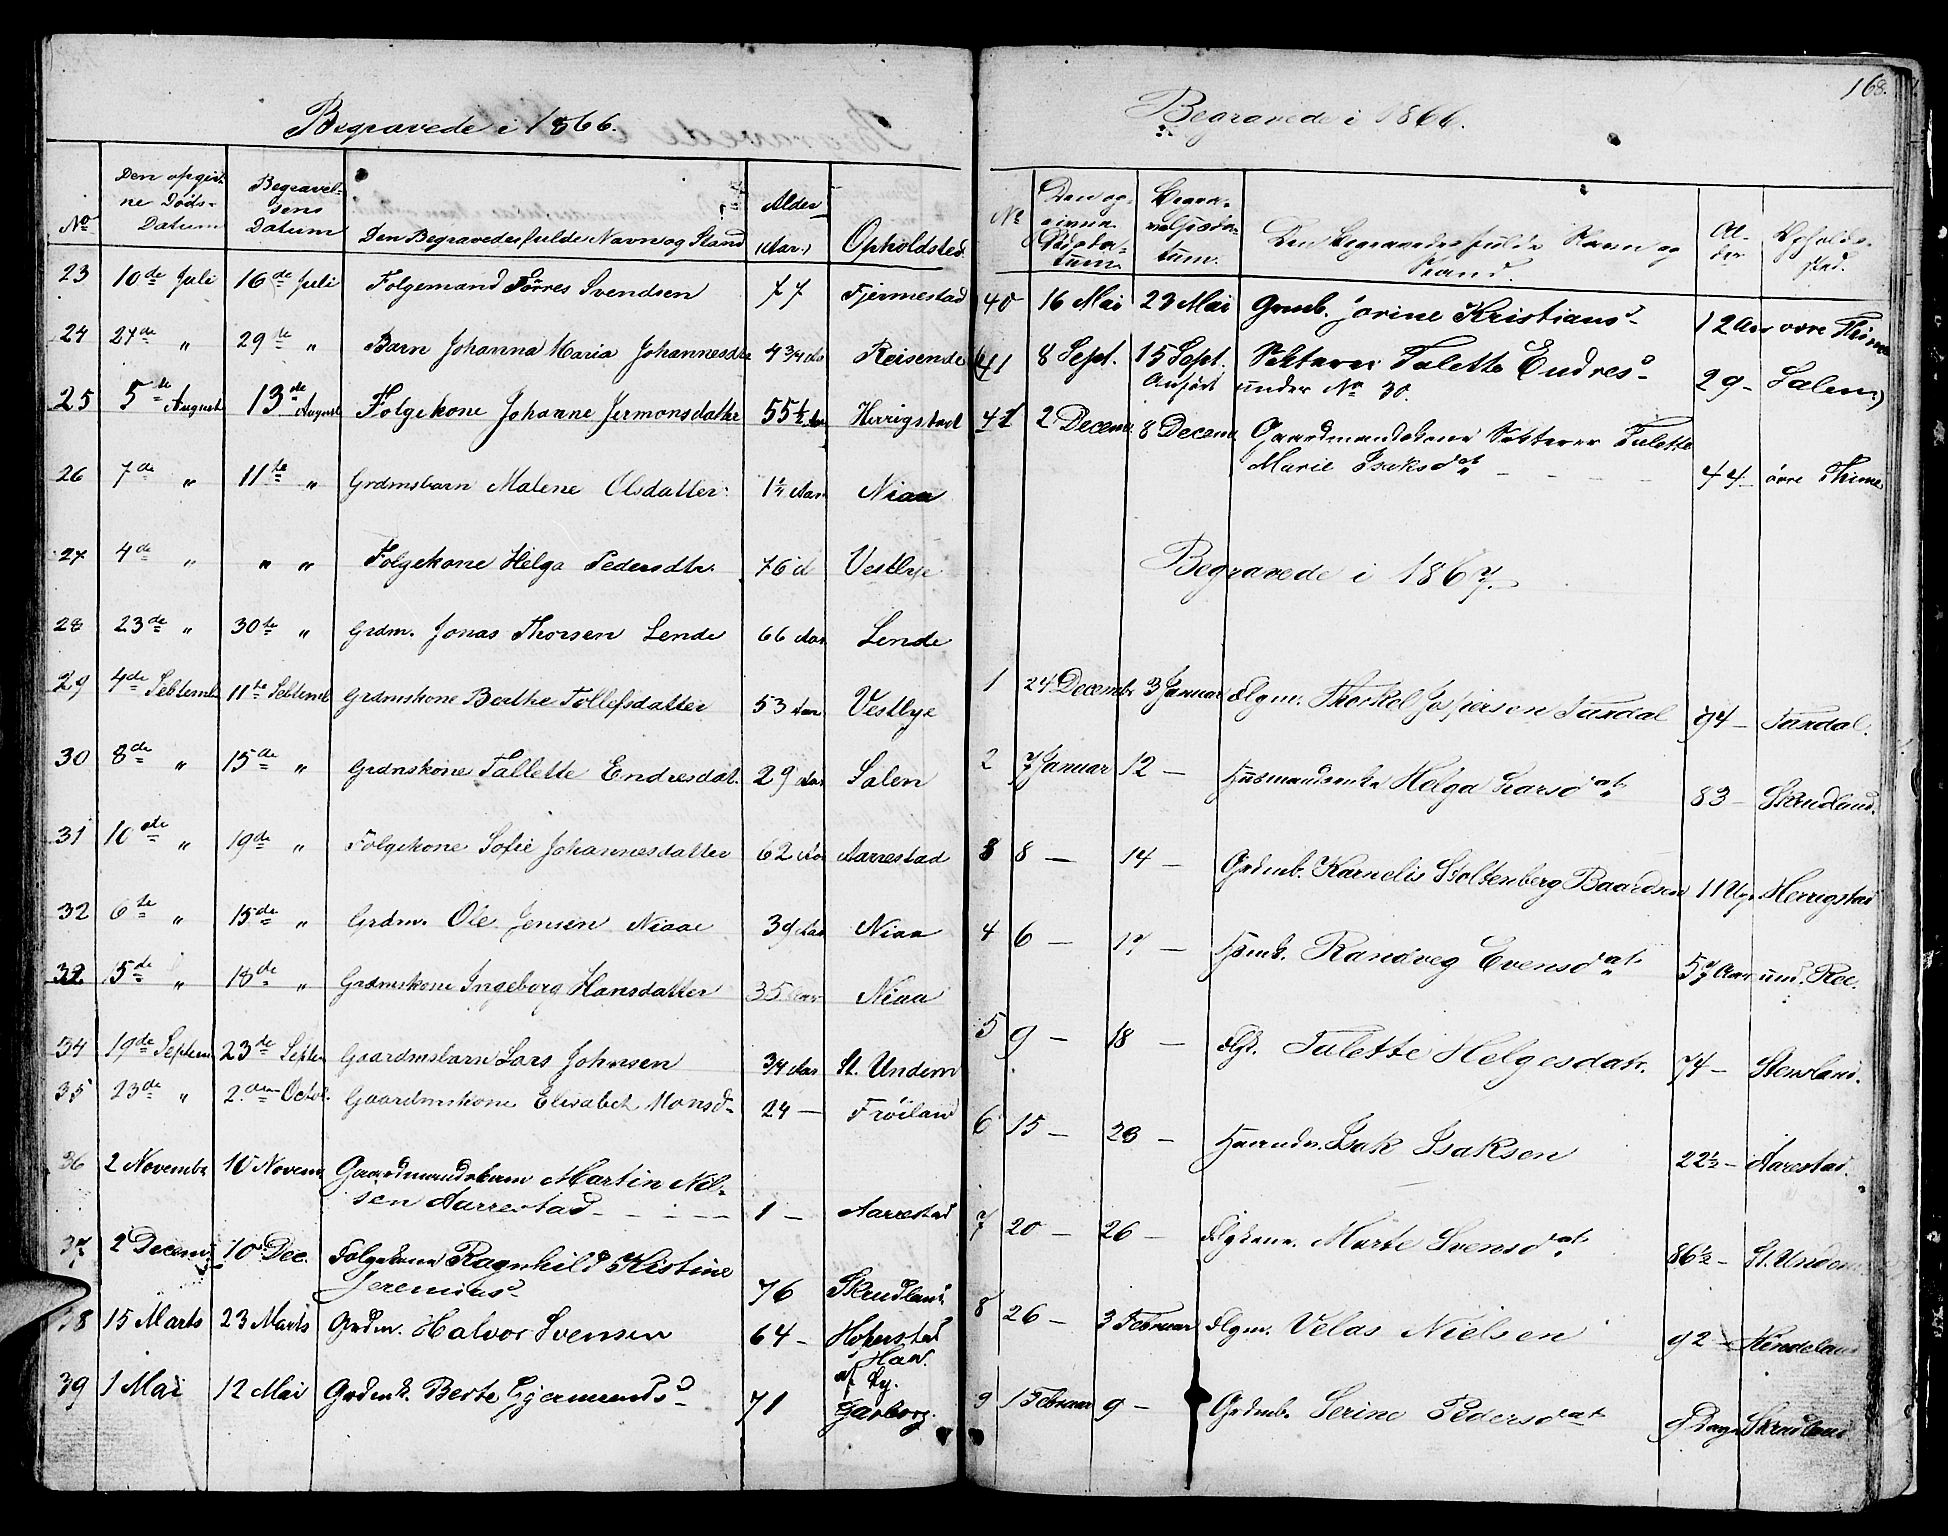 Begravede i 1866.
No Den opgivne Døds-Datum Begravelsens Datum Den Begravedes fulde Navn og Stand Alder (Aar.) Opholdsted.
23 10de Juli 16de Juli Folgemand Tørres Svendsen 77 Fjermestad
24 27de " 29de " Barn Johanna Maria Johannesdtr 4 3/4 Aar Reisende
25 5te August 13de August Folgekone Johanne Jermonsdatter 55 1/2 Aar Herrigstad
26 7de " 11te " Grdmsbarn Malene Olsdatter Aar Niaa
27 4de " " " Folgekone Helga Pedersdtr. 76 Vestlye
28 23de " 30te " Grdm. Jonas Thorsen Lende 66 Aar Lende
29 4de Septemb 11te Septemb Grdmskone Berthe Tollefsdatter 53 Aar Vestlye
30 8de " 15de " Grdmskone Tallette Endresdat. 29 Aar Salen
31 10de " 19de " Folgekone Sofie Johannesdatter 62 Aar Aarrestad
32 6te " 15de " Grdm. Ole Jensen Niaae 39 Aar Niaa
33 15de " 18de " Grdmskone Ingeborg Hansdatter 35 Aar Niaa
34 19de Septem 23de Septem Gaardmsbarn Lars Johnsen 3/4 Aar St. Undem
35 23de " 2den Octob. Gaardmskone Elisabet Monsd- 24 — Frøiland
36 2 Novembr 10 Novem Gaardmandsbarn Martin Nil-
sen Aarrestad 1 — Aarrestad
37 2 Decem 10 Dec. Folgekone Ragnhild Kistine
Jeremiasd 76 Skrudland.
38 15 Marts 23 Marts Grdm. Halvor Svensen 64 — Hognestad
39 1 Mai 12 Mai Grdmk. Berte Gjermundsd 71 Garborg.
168.
Begravede i 1866.
No Den opgivne Dødsdatum Begravelsesdatum. Den Begravedes fulde Navn og Stand. Alder Opholdssted.
40 16 Mai 23 Mai Grmb. Jorine Kristiansd 12 Aar øvre Thime
41 8 Sept. 15 Sept. Sekterer Talette Endresd 29 — Salen)
Anført under No 30.
41 2 Decem 8 Decem Gaardmandskone Sekterer Talette
Marie Isaksdat 44 — øvre Thime
Begravede i 1867.
1 24 Decembr 3 Januar Flgm. Thorkel Jospersen Taxdal 94 — Taxdal.
2 7 Januar 12 — Husmandsenke Helga Larsdat 83 — Skrudland.
3 8 — 14 — Grdmb. Karnelis Stoltenberg Baardsen 11 Uger Herrigstad
4 6 — 17 — Hsmb. Randveg Evensdat Aar und. Ree.
5 9 — 18 — Flgk. Talette Helgesdatr. 74 — Stensland.
6 15 — 23 — Isak Isaksen 22 1/2 — Aarestad.
7 20 — 26 — Marte Svensdat 86 1/2 — St. Undem
8 26 — 3 Februar Flgm. Velas Nielsen 92 — Hindeland
9 1 Februar 9 — Grdmb. Serine Pedersdat 9 Dage Skrudland